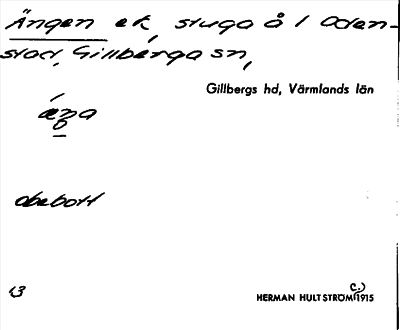 Ängen ek, stuga å 1 Oden-
stad, Gillberga sn,
Gillbergs hd, Värmlands län
obebott
13
HERMAN HULTSTRÖM 1915